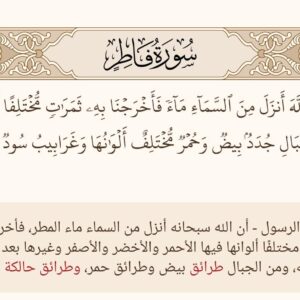 سُورَةُ فَاطِرٍ
أَنزَلَ مِنَ ٱلسَّمَآءِ مَآءً فَأَخْرَجْنَا بِهِۦ ثَمَرَٰتٍ مُّخْتَلِفًا
جُدَدٌۢ بِيضٌ وَحُمْرٌ مُّخْتَلِفٌ أَلْوَٰنُهَا وَغَرَابِيبُ سُودٌ
الرسول - أن الله سبحانه أنزل من السماء ماء المطر، فأخر
مختلفًا ألوانها فيها الأحمر والأخضر والأصفر وغيرها بعد
ه، ومن الجبال طرائق بيض وطرائق حمر، وطرائق حالكة